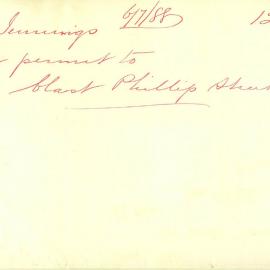 Jennings 6/7/88 12
permit to
blast Phillip Street